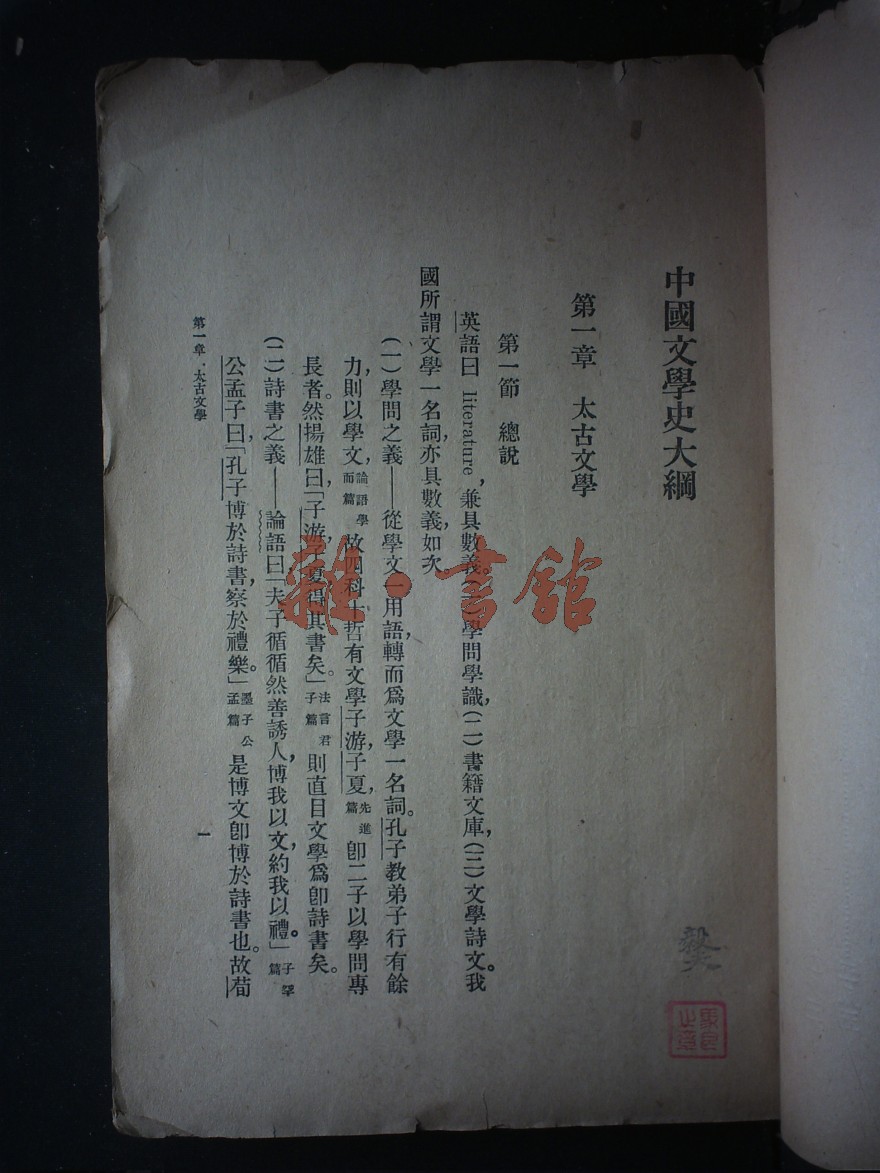 中國文學史大綱
第一章 太古文學
第一節 總說
英語曰 literature，兼具數義。(一)學問學識，(二)書籍文庫，(三)文學詩文。我
國所謂文學一名詞，亦具數義，如次。
(一)學問之義——從學文一用語，轉而爲文學一名詞。孔子教弟子行有餘
力，則以學文，論語學而篇故四科十哲有文學子游，子夏，先進篇卽二子以學問專
長者。然揚雄曰「子游，子夏得其書矣。」法言君子篇則直目文學爲卽詩書矣。
(二)詩書之義——論語曰，「夫子循循然善誘人，博我以文，約我以禮。」子罕篇
公孟子曰，「孔子博於詩書，察於禮樂。」墨子公孟篇是博文卽博於詩書也。故荀
第一章．太古文學
一
雜·書館